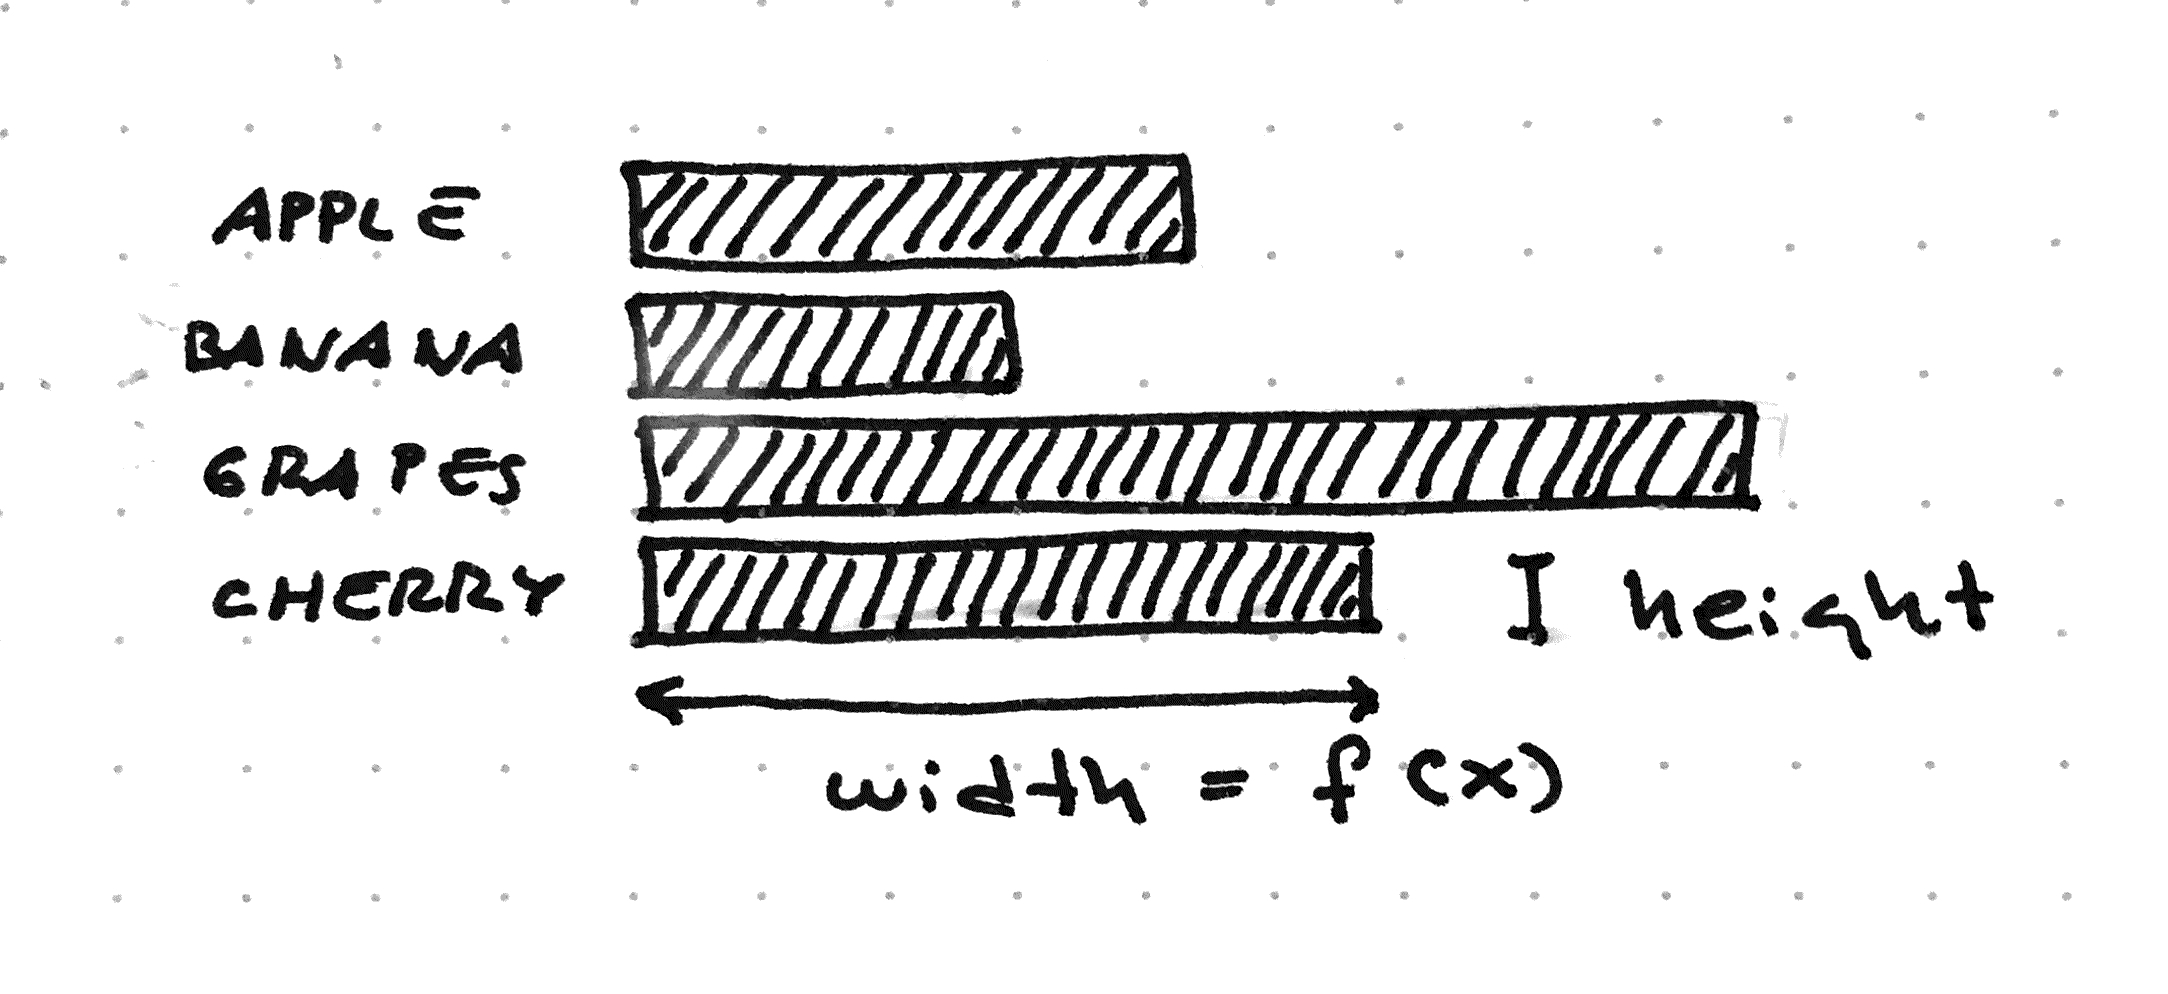 APPLE
BANANA
GRAPES
CHERRY
height
width = f(x)